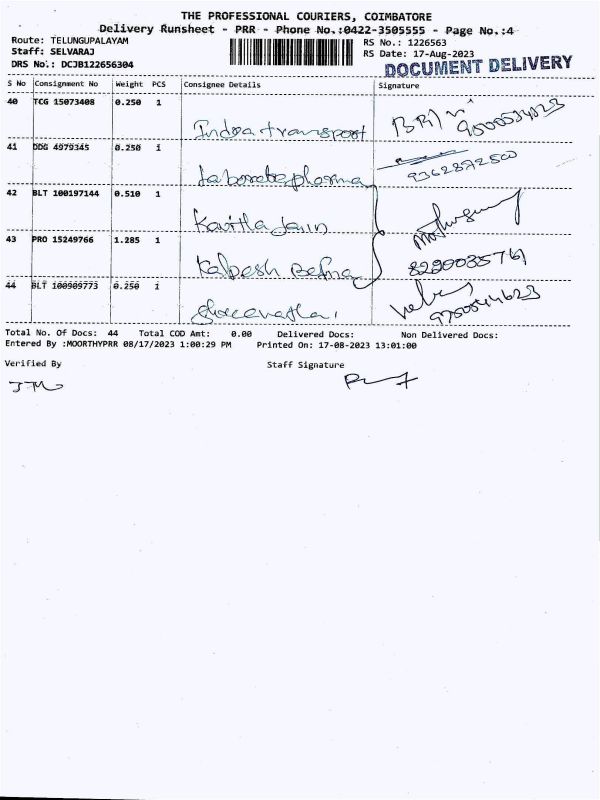 THE PROFESSIONAL COURIERS, COIMBATORE
Delivery Runsheet - PRR - Phone No.:0422-3505555 - Page No.:4
Route: TELUNGUPALAYAM RS No.: 1226563
Staff: SELVARAJ RS Date: 17-Aug-2023
DRS No.: DCJB122656304 DOCUMENT DELIVERY
S No Consignment No Weight PCS Consignee Details Signature
40 TCG 15073408 0.250 1
Indra transport
41 DDG 4979345 0.250 1
9362872500
42 BLT 100197144 0.510 1
Kavitla Jain
43 PRO 15249766 1.285 1
Kalpesh
44 BLT 100909773 0.250 1
Total No. Of Docs: 44 Total COD Amt: 0.00 Delivered Docs: Non Delivered Docs:
Entered By :MOORTHYPRR 08/17/2023 1:00:29 PM Printed On: 17-08-2023 13:01:00
Verified By Staff Signature